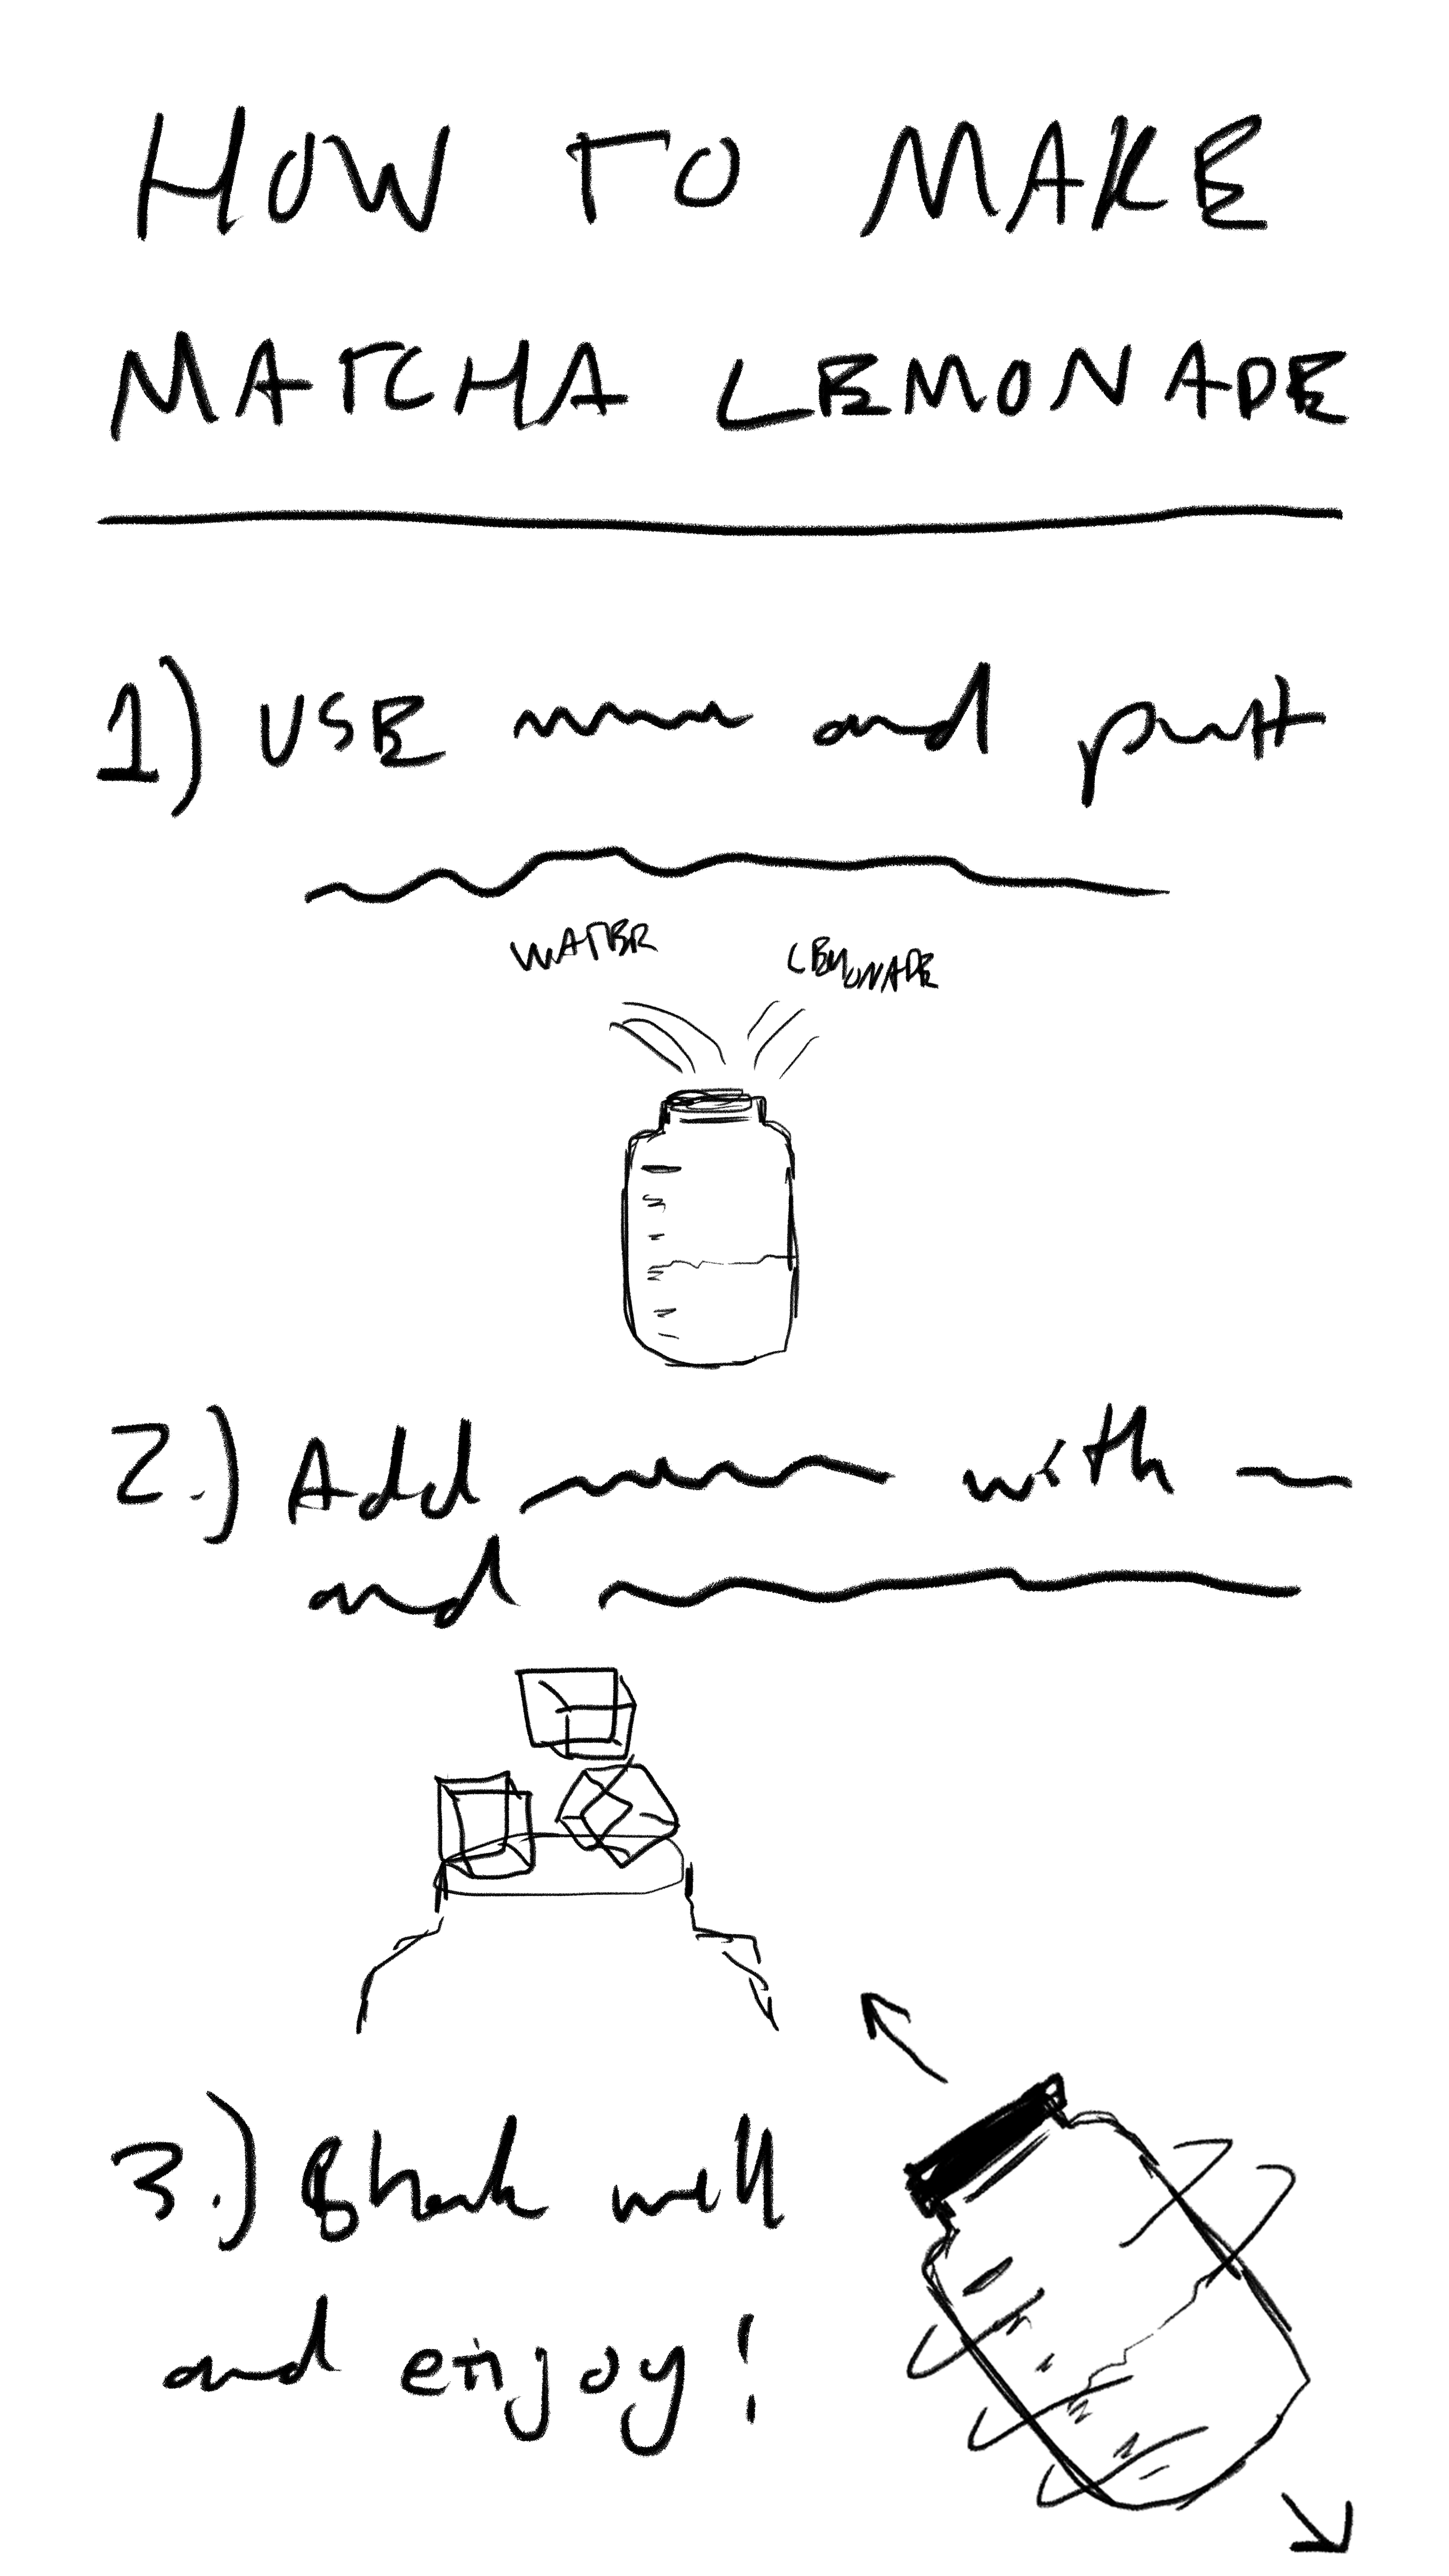 HOW TO MAKE
MATCHA LEMONADE
1) USE and putt
WATER LEMONADE
2.) Add with
and
3.) Shak well
and enjoy!